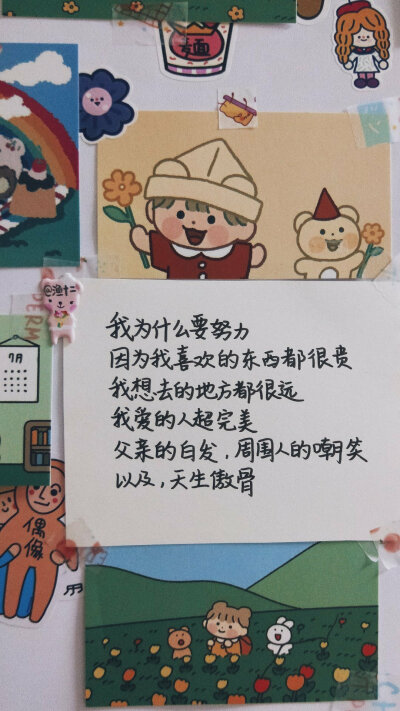 @渔十二
我为什么要努力
因为我喜欢的东西都很贵
我想去的地方都很远
我爱的人超完美
父亲的白发，周围人的嘲笑
以及，天生傲骨
7月
偶像